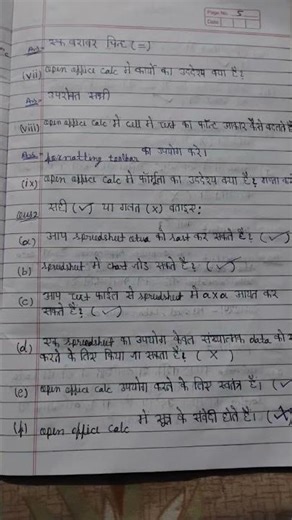 Page No. 5
Date
Ans- एक बराबर चिन्ह (=)
(vii) open office calc में कार्यो का उद्देश्य क्या है?
Ans- उपरोक्त सभी
(viii) open office calc में cell में text का फॉन्ट आकार कैसे बदलते है
formatting toolbar का उपयोग करें।
(ix) open office calc में फॉर्मूला का उद्देश्य क्या है?
सही (✓) या गलत (x) बताइए:
(a) आप spreadsheet को sort कर सकते है? (✓)
(b) spreadsheet में chart जोड़ सकते है? (✓)
(c) आप text फाईल से spreadsheet में आयात कर
सकते है? (✓)
(d) एक spreadsheet का उपयोग केवल संख्यात्मक data को
करने के लिए किया जा सकता है? (X)
(e) open office calc उपयोग करने के लिए स्वतंत्र है। (✓
(f) open office calc में सूत्र के संवेदी होते है।